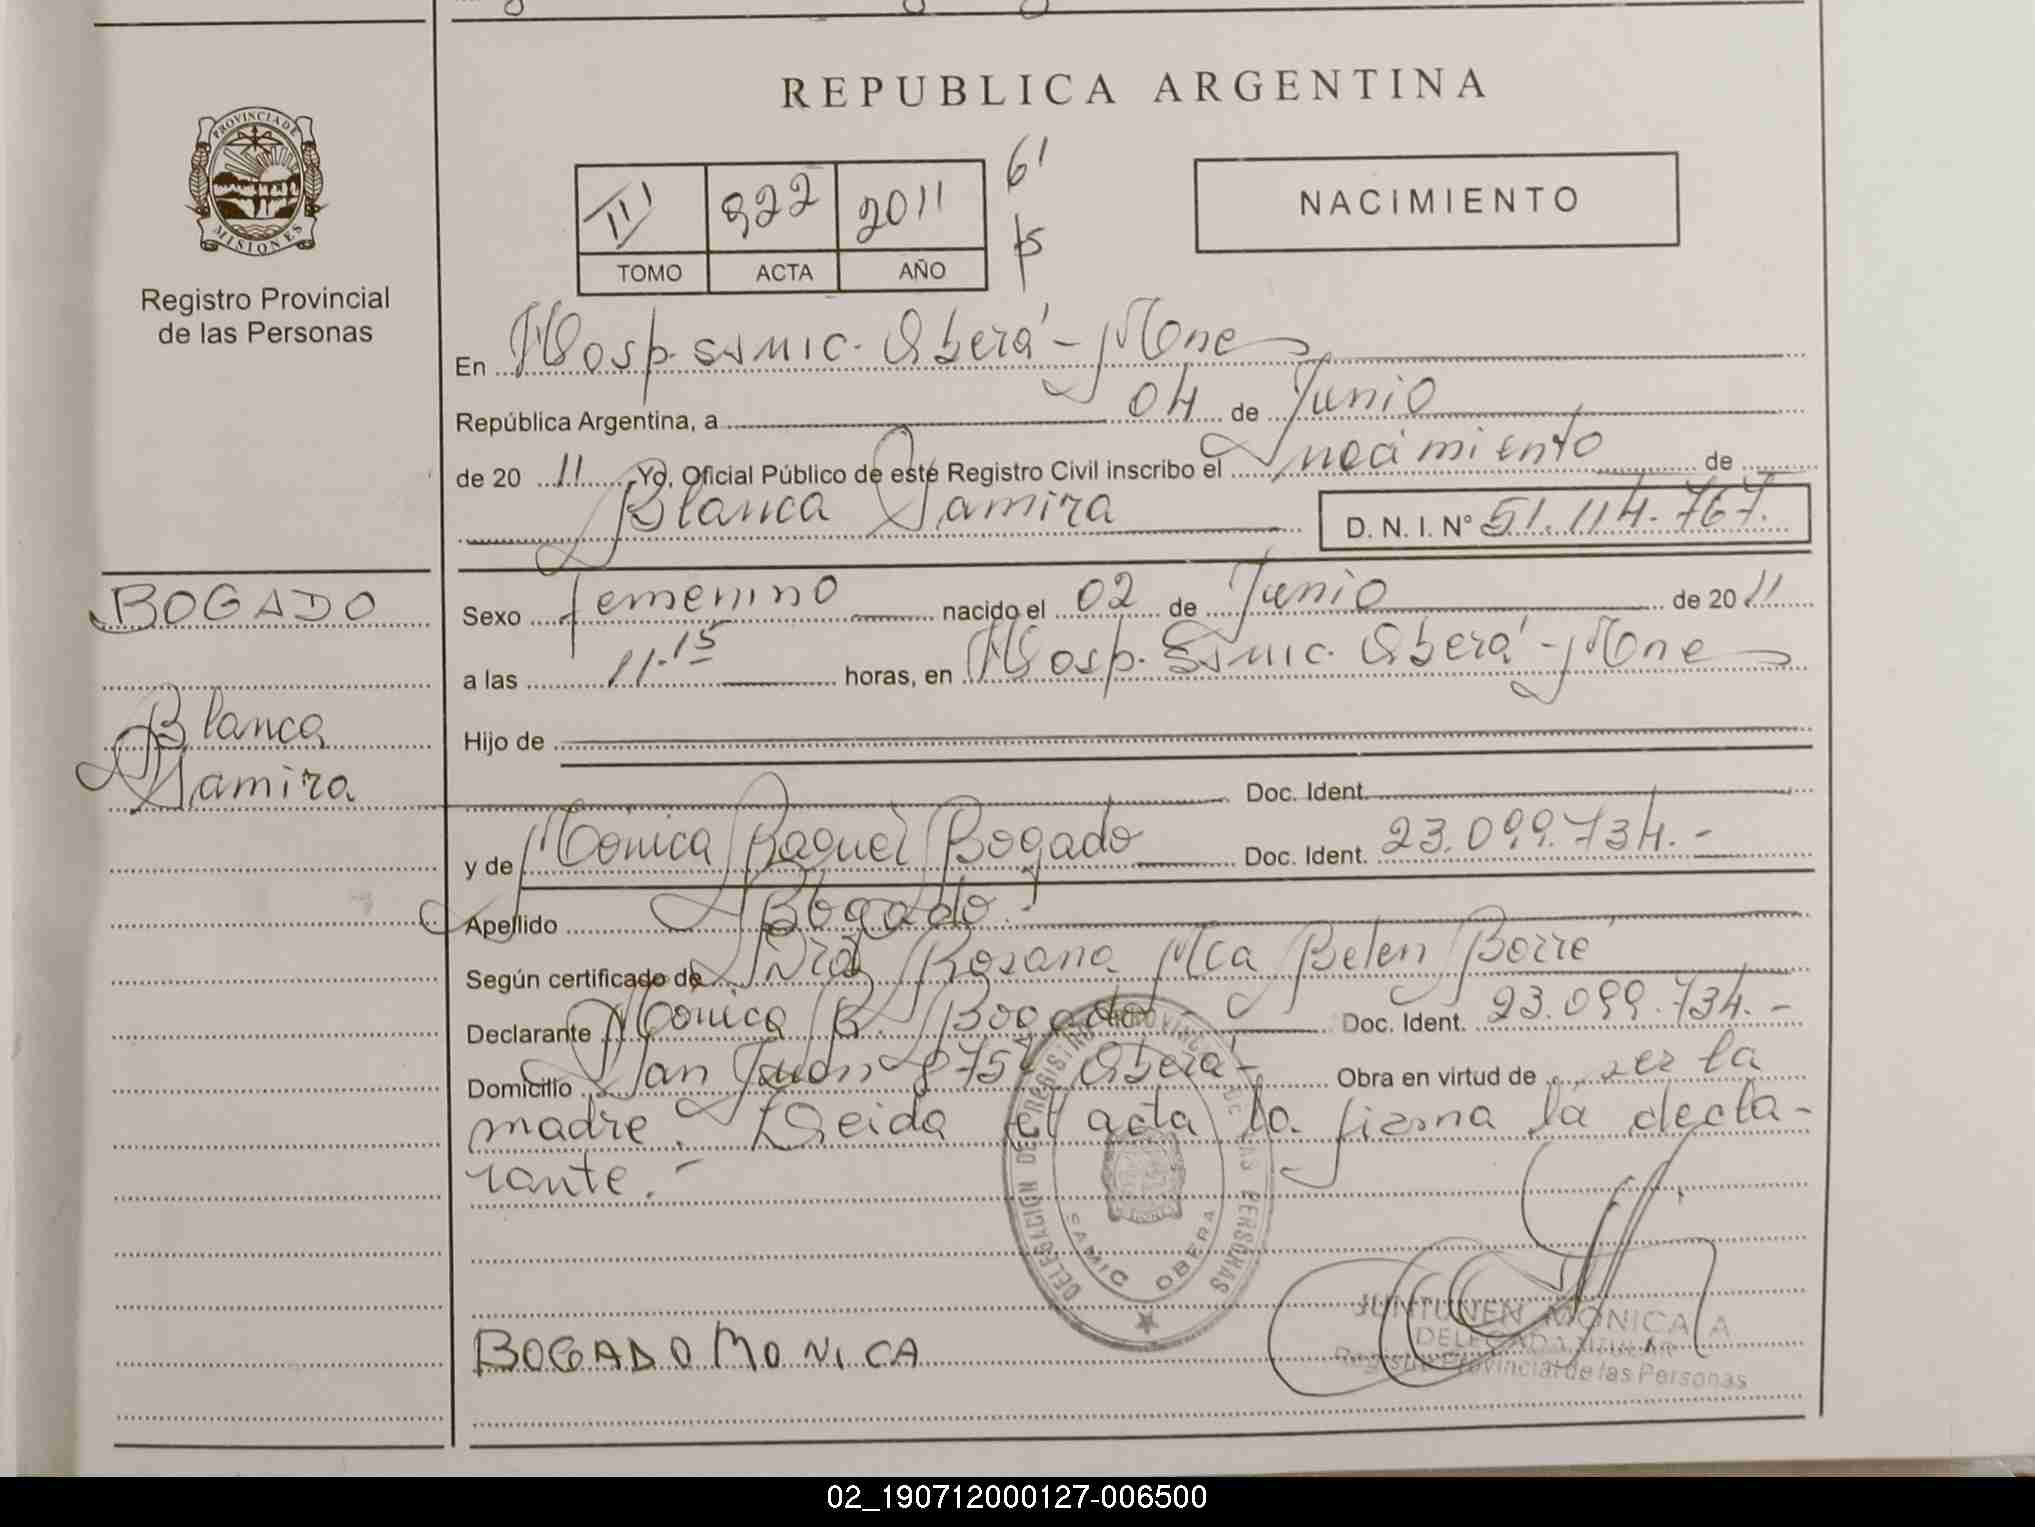 REPUBLICA ARGENTINA
PROVINCIA DE
MISIONES
Registro Provincial
de las Personas
III 922 2011
TOMO ACTA AÑO
NACIMIENTO
En Hosp. SAMIC. Oberá - Mnes
República Argentina, a 04 de Junio
de 20 11 Yo, Oficial Público de este Registro Civil inscribo el nacimiento de
Blanca Samira D. N. I. N° 51.114.767.
BOGADO
Blanca
Samira
Sexo femenino nacido el 02 de Junio de 20 11
a las 11.15 horas, en Hosp. Samic. Oberá - Mnes
Hijo de
Doc. Ident.
y de Mónica Raquel Bogado Doc. Ident. 23.099.734.-
Apellido Bogado.
Según certificado de Dra Rosana Mca Belen Borré
Declarante Monica R. Bogado - Doc. Ident. 23.099.734.-
Domicilio San Juan 875 Oberá - Obra en virtud de ser la
madre. Leida el acta la firma la decla-
rante.-
DELEGACION DE REGISTRO PROVINCIAL DE LAS PERSONAS
SAMIC OBERA
BOGADO MONICA
JUNTUNEN MONICA A
DELEGADA TITULAR
Registro Provincial de las Personas
02_190712000127-006500